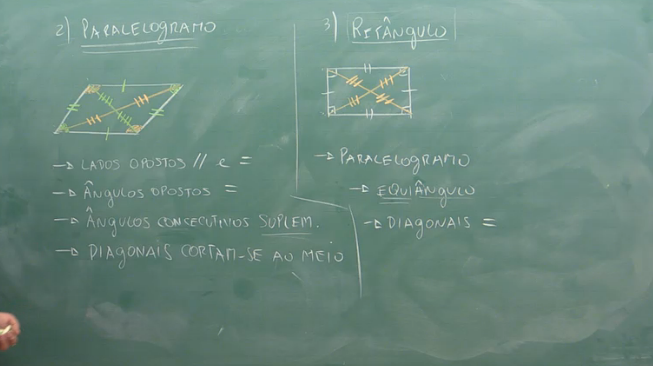 2) PARALELOGRAMO
→ LADOS OPOSTOS // e =
→ ÂNGULOS OPOSTOS =
→ ÂNGULOS CONSECUTIVOS SUPLEM.
→ DIAGONAIS CORTAM-SE AO MEIO
3) RETÂNGULO
→ PARALELOGRAMO
→ EQUIÂNGULO
→ DIAGONAIS =